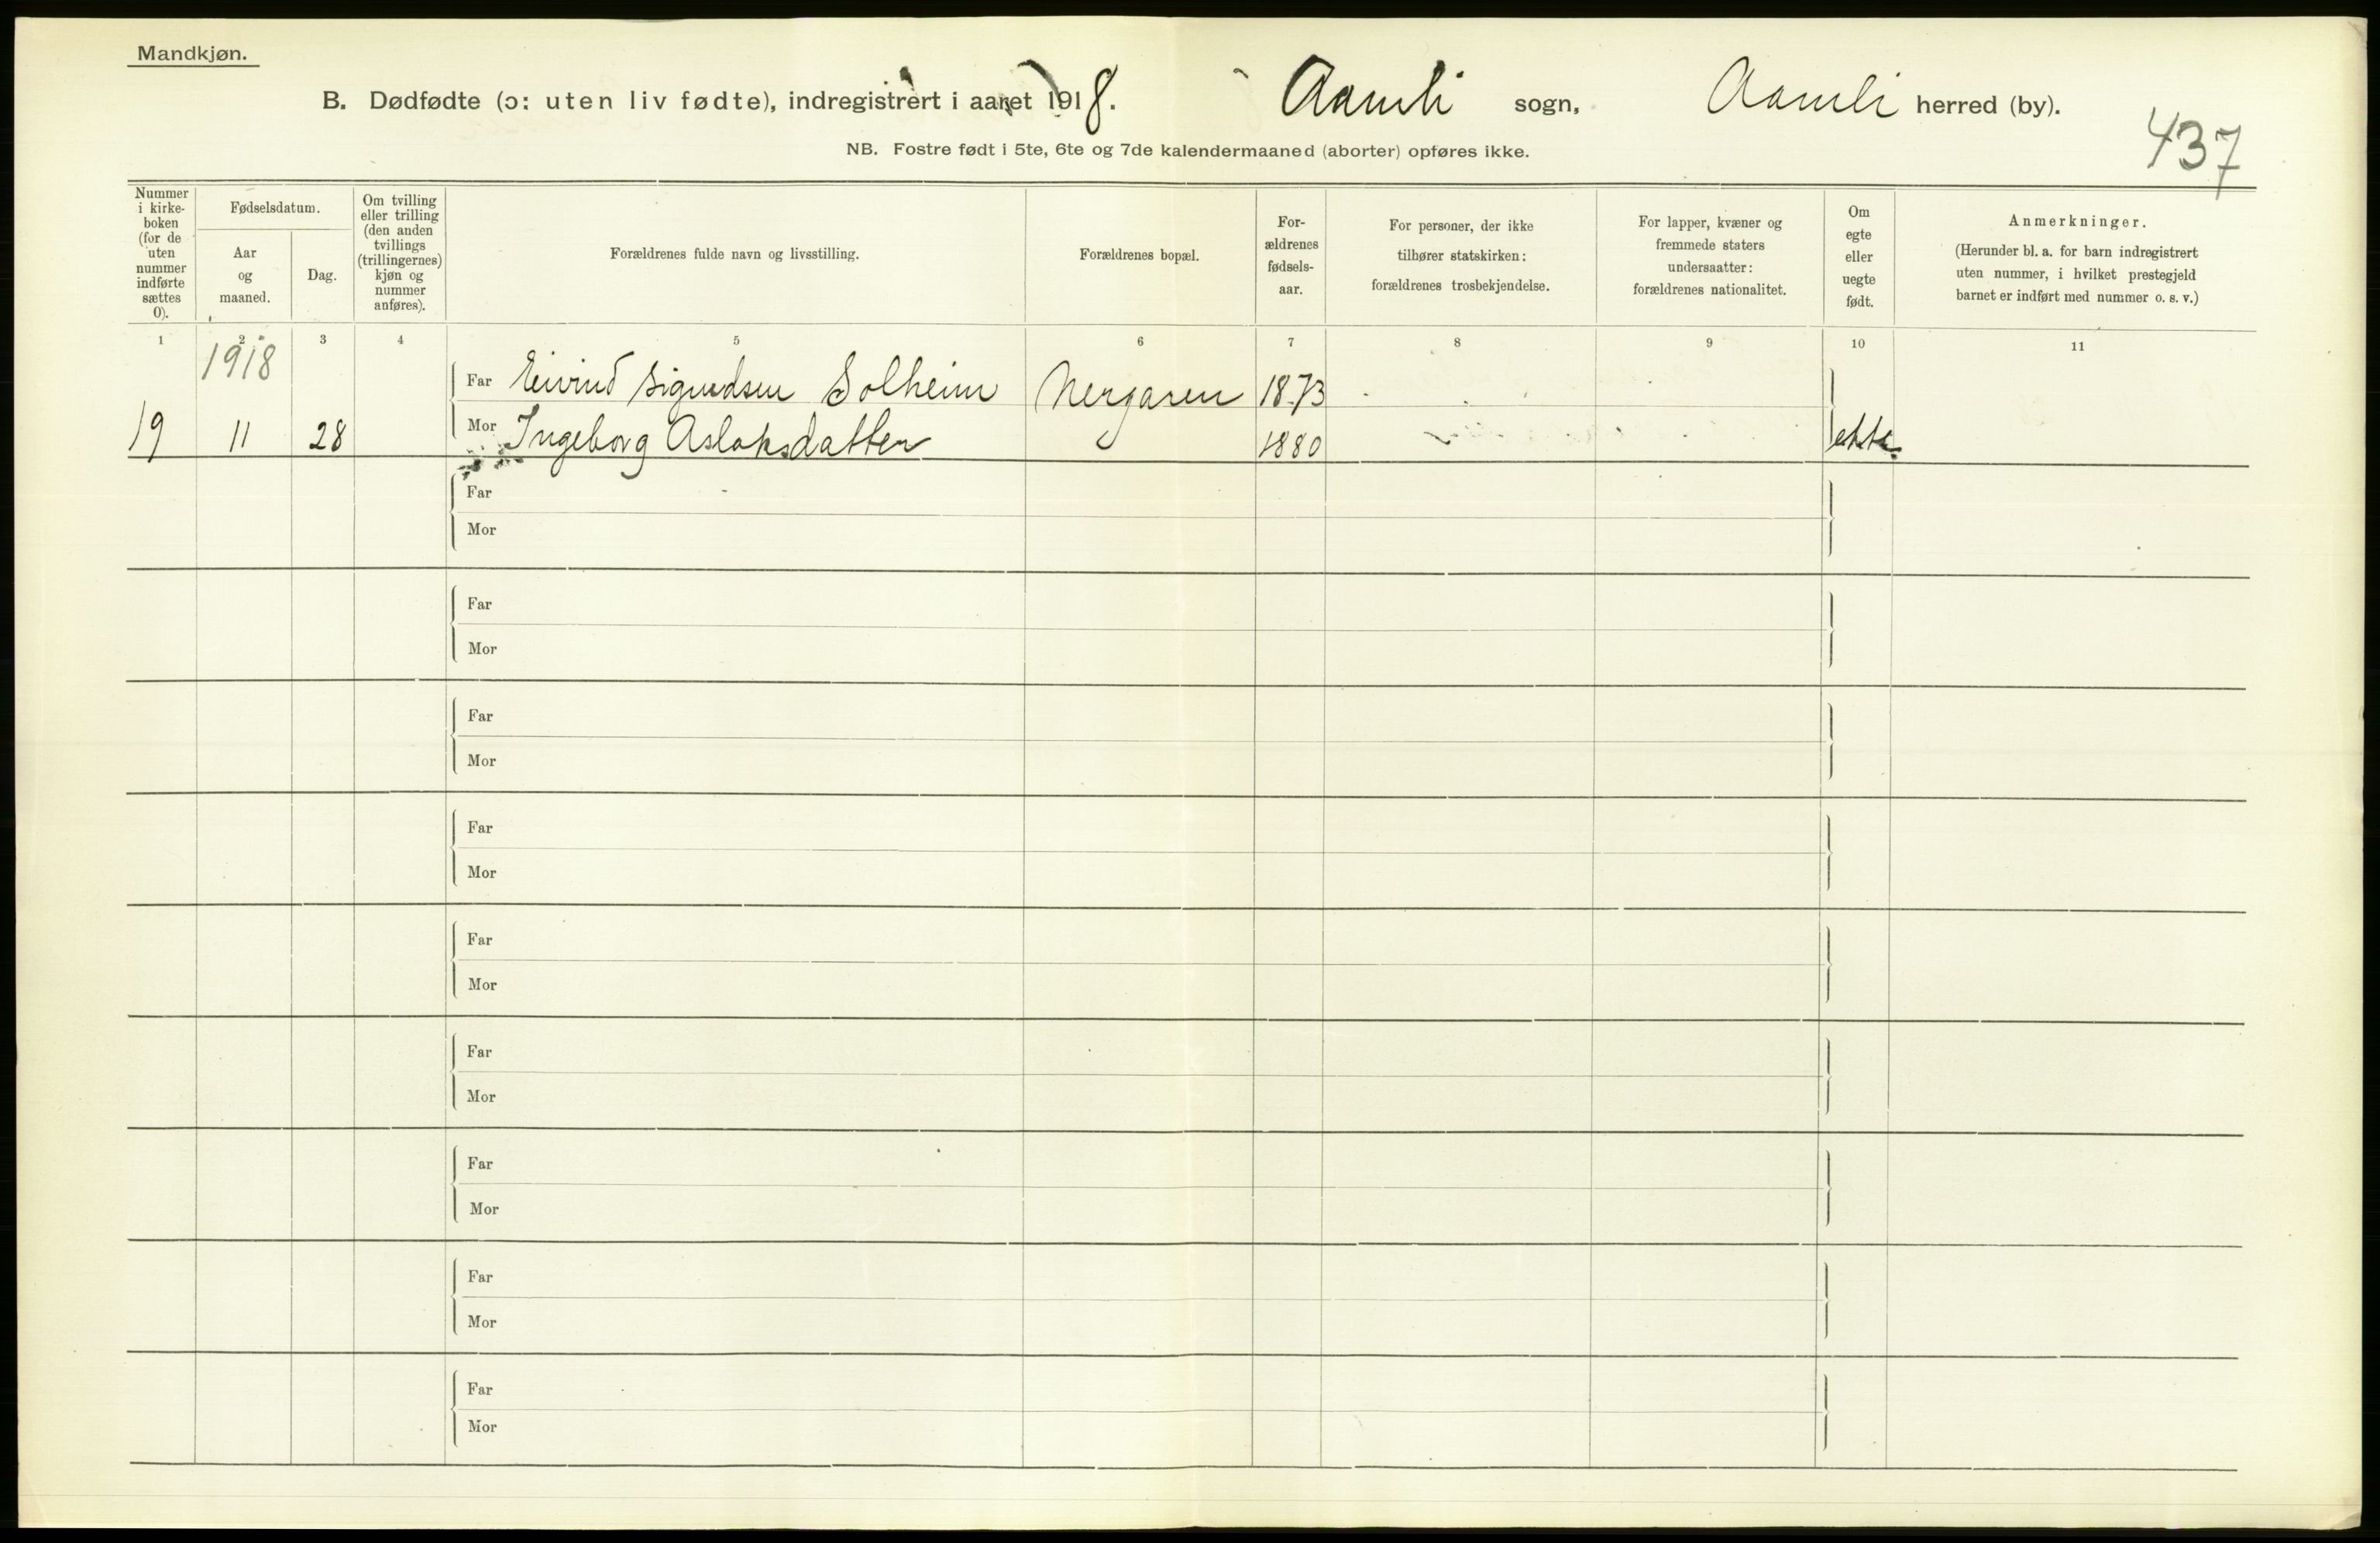 Mandkjøn.
B. Dødfødte (ɔ: uten liv fødte), indregistrert i aaret 1918. Aamli sogn, Aamli herred (by).
437
NB. Fostre født i 5te, 6te og 7de kalendermaaned (aborter) opføres ikke.
Nummer
i kirke-
boken
(for de
uten
nummer
indførte
sættes
0).
Fødselsdatum.
Aar
og
maaned.
Dag.
Om tvilling
eller trilling
(den anden
tvillings
(trillingernes)
kjøn og
nummer
anføres).
Forældrenes fulde navn og livsstilling.
Forældrenes bopæl.
For-
ældrenes
fødsels-
aar.
For personer, der ikke
tilhører statskirken:
forældrenes trosbekjendelse.
For lapper, kvæner og
fremmede staters
undersaatter:
forældrenes nationalitet.
Om
egte
eller
uegte
født.
Anmerkninger.
(Herunder bl. a. for barn indregistrert
uten nummer, i hvilket prestegjeld
barnet er indført med nummer o. s. v.)
1 2 3 4 5 6 7 8 9 10 11
1918
Far Eivind Sigurdsen Solheim Nergaren 1873
19 11 28 Mor Ingeborg Aslaksdatter 1880 ekte
Far
Mor
Far
Mor
Far
Mor
Far
Mor
Far
Mor
Far
Mor
Far
Mor
Far
Mor
Far
Mor